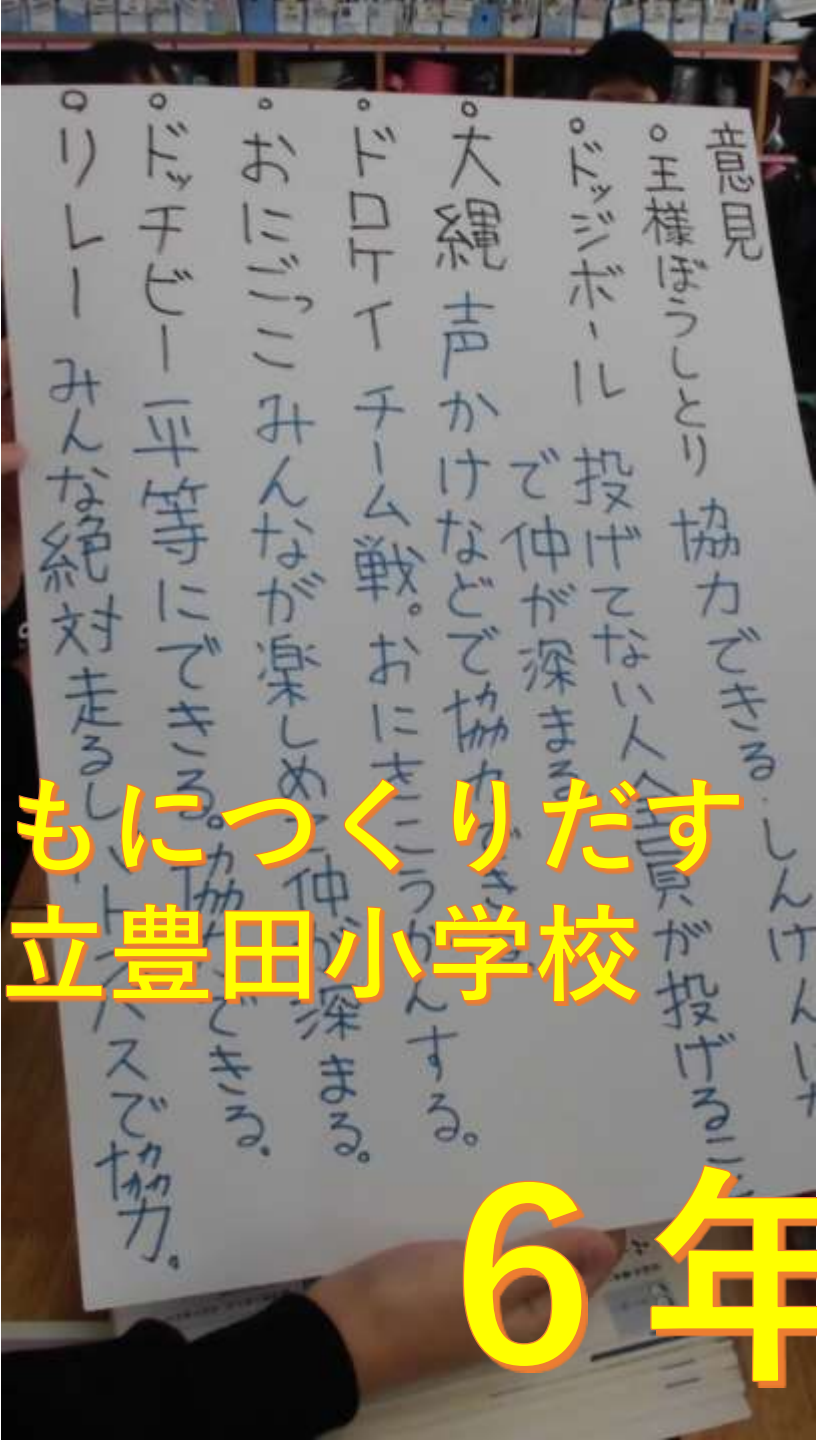 意見
。王様ぼうしとり 協力できる.しんけん
。ドッジボール 投げてない人全員が投げること
で仲が深まる
。大縄 声かけなどで協力できる。
。ドロケイ チーム戦。おにきこうかんする。
。おにごっこ みんなが楽しめて仲が深まる。
。ドッチビー 平等にできる。協力できる。
。リレー みんな絶対走るし、バトンパスで協力。
もにつくりだす
立豊田小学校
６年